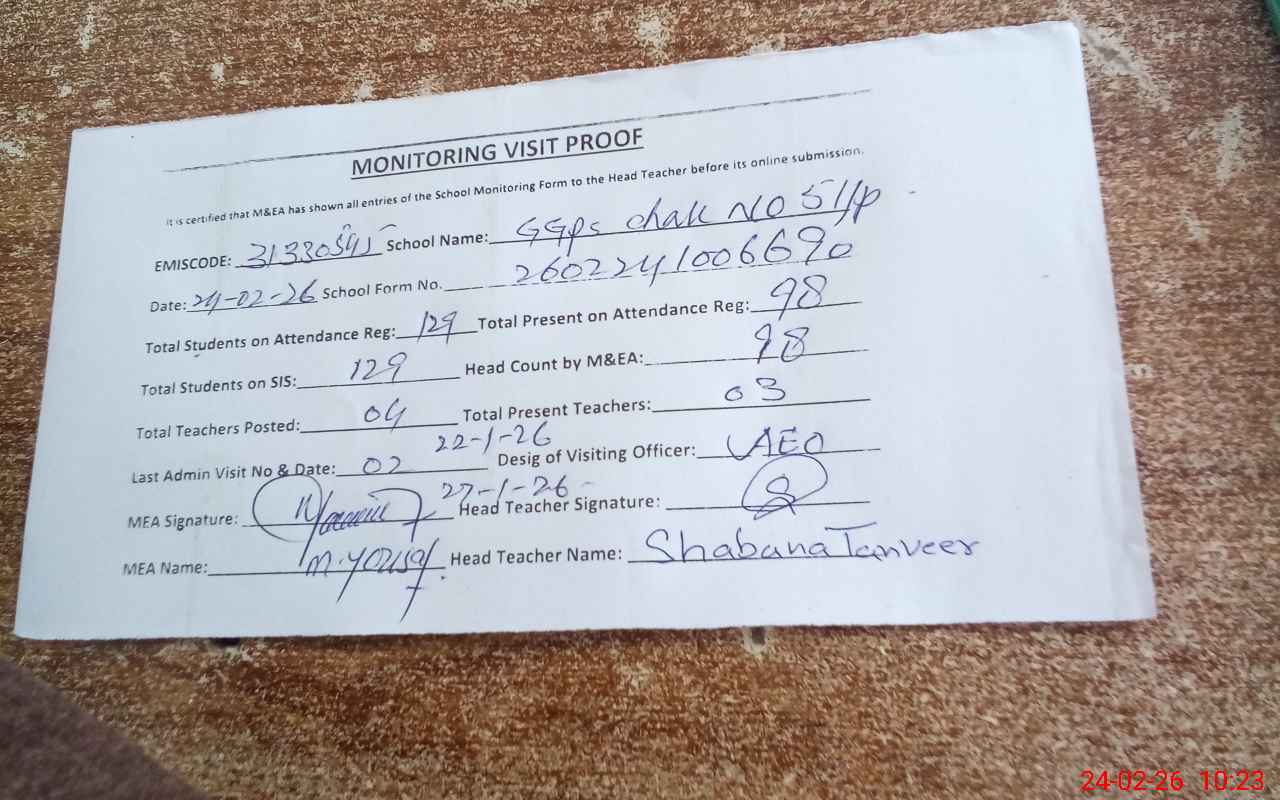 MONITORING VISIT PROOF
It is certified that M&EA has shown all entries of the School Monitoring Form to the Head Teacher before its online submission.
EMISCODE: School Name: GGps chak NO 511p
Date: 24-02-26 School Form No. 2602241006690
Total Students on Attendance Reg: 129 Total Present on Attendance Reg: 98
Total Students on SIS: 129 Head Count by M&EA: 98
Total Teachers Posted: 04 Total Present Teachers: 03
22-1-26
Last Admin Visit No & Date: 02 Desig of Visiting Officer: AEO
27-1-26
MEA Signature: Head Teacher Signature:
MEA Name: M. Yousaf Head Teacher Name: Shabana Tanveer
24-02-26 10:23